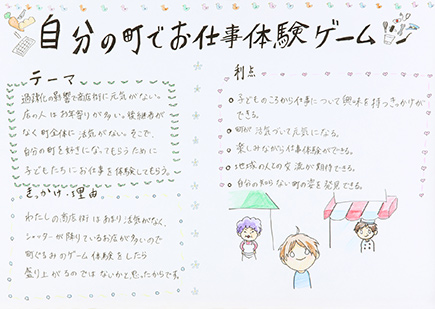 自分の町でお仕事体験ゲーム
テーマ
過疎化の影響で商店街に元気がない。
店の人はお年寄りが多い。後継者が
なく町全体に活気がない。そこで、
自分の町を好きになってもらうために
子どもたちにお仕事を体験してもらう。
きっかけ・理由
わたしの商店街はあまり活気がなく、
シャッターが降りているお店が多いので
町ぐるみのゲーム体験をしたら
盛り上がるのではないかと思ったからです。
利点
子どものころから仕事について興味を持つきっかけが
できる。
町が活気づいて元気になる。
楽しみながら仕事体験ができる。
地域の人との交流が期待できる。
自分の知らない町の姿を発見できる。